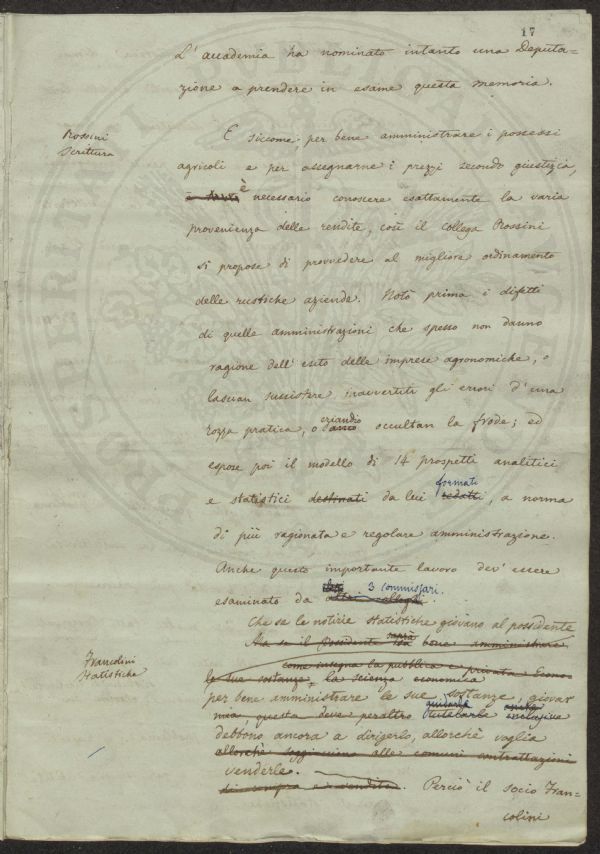 17
L'accademia ha nominato intanto una Deputa=
zione a prendere in esame questa memoria.
Rossini
Scrittura
E siccome, per bene amministrare i possessi
agricoli e per assegnarne i prezzi secondo giustizia,
è necessario conoscere esattamente la varia
provenienza delle rendite, così il collega Rossini
si propose di provvedere al migliore ordinamento
delle rustiche aziende. Notò prima i difetti
di quelle amministrazioni che spesso non danno
ragione dell'esito delle imprese agronomiche, o
lascian sussistere inavvertiti gli errori d'una
rozza pratica, o anco eziandio occultan la frode; ed
espose poi il modello di 14 prospetti analitici
formati
e statistici destinati da lui redatti, a norma
di più ragionata e regolare amministrazione.
Anche questo importante lavoro dev'essere
3 commissari.
esaminato da altri colleghi
Che se le notizie statistiche giovano al possidente
Ma se il Possidente saprà bene amministrare
Francolini
Statistiche
come insegna la pubblica e privata Econo
le sue sostanze, la scienza economica
per bene amministrare le sue sostanze, giovar
mia, questa deve peraltro guidarlo tutelarlo anche
debbono ancora a dirigerlo, allorchè voglia
allorchè soggiacciono alle comuni contrattazioni
venderle.
di compra e vendita. Perciò il socio Fran=
colini